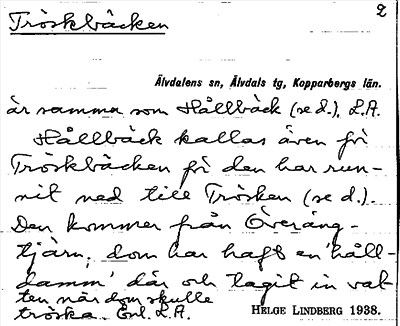 2
Tröskbäcken
Älvdalens sn, Älvdals tg, Kopparbergs län.
är samma som Hållbäck (se d.), L.A.
Hållbäck kallas även för
Tröskbäcken för den har run-
nit ned till Trösken (se d.).
Den kommer från Överäng-
tjärn, dom har haft en 'håll-
damm' där och tagit in vat-
ten när dom skulle
tröska. Enl. L.A.
HELGE LINDBERG 1938.